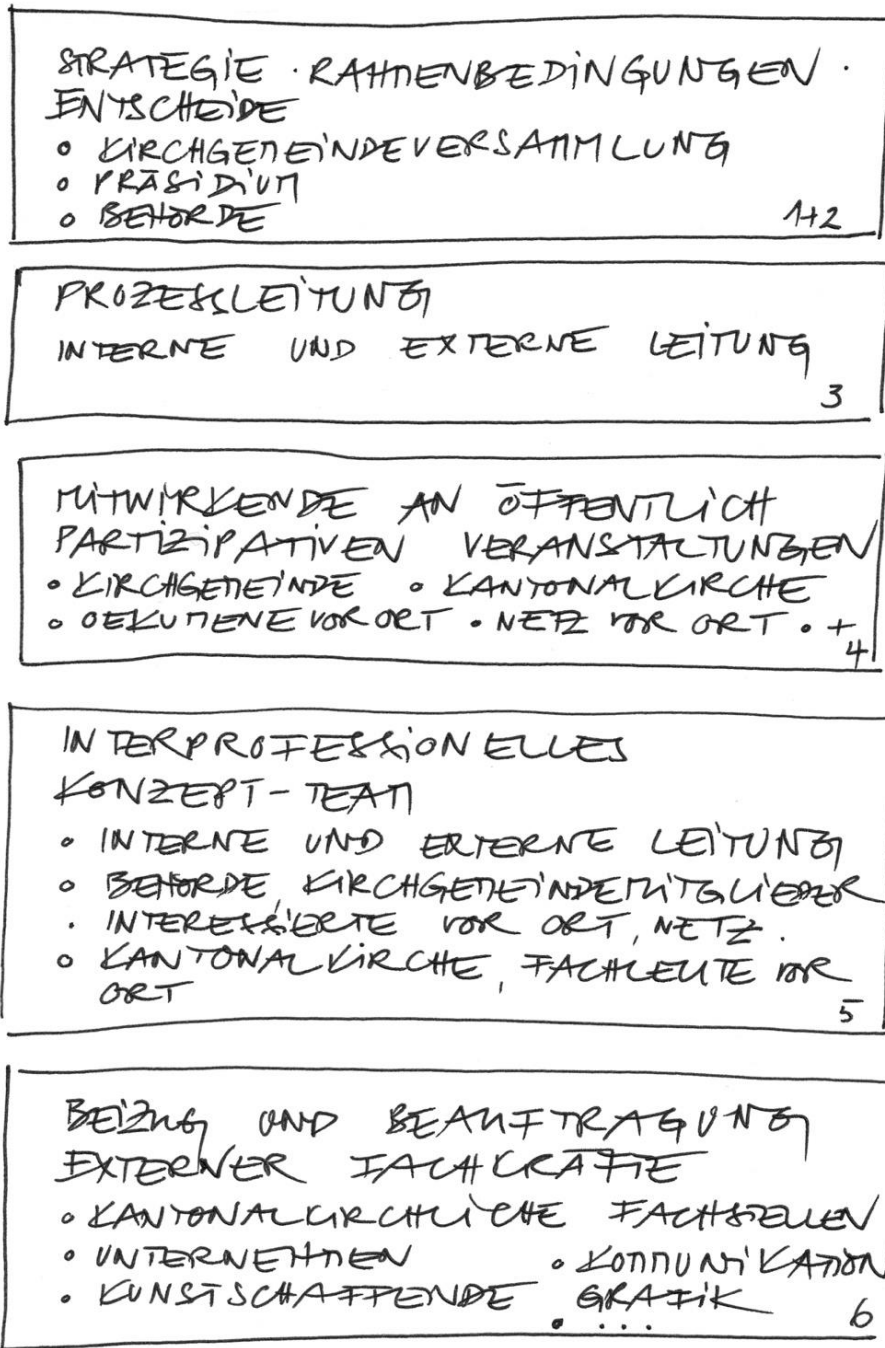 STRATEGIE · RAHMENBEDINGUNGEN ·
ENTSCHEIDE
• KIRCHGEMEINDEVERSAMMLUNG
• PRÄSIDIUM
• BEHÖRDE
1+2
PROZESSLEITUNG
INTERNE UND EXTERNE LEITUNG
3
MITWIRKENDE AN ÖFFENTLICH
PARTIZIPATIVEN VERANSTALTUNGEN
• KIRCHGEMEINDE • KANTONALKIRCHE
• OEKUMENE VOR ORT • NETZ VOR ORT • +
4
INTERPROFESSIONELLES
KONZEPT-TEAM
• INTERNE UND EXTERNE LEITUNG
• BEHÖRDE, KIRCHGEMEINDEMITGLIEDER
• INTERESSIERTE VOR ORT, NETZ.
• KANTONALKIRCHE, FACHLEUTE VOR
ORT
5
BEIZUG UND BEAUFTRAGUNG
EXTERNER FACHKRÄFTE
• KANTONALKIRCHLICHE FACHSTELLEN
• UNTERNEHMEN • KOMMUNIKATION
• KUNSTSCHAFFENDE GRAFIK
• ...
6